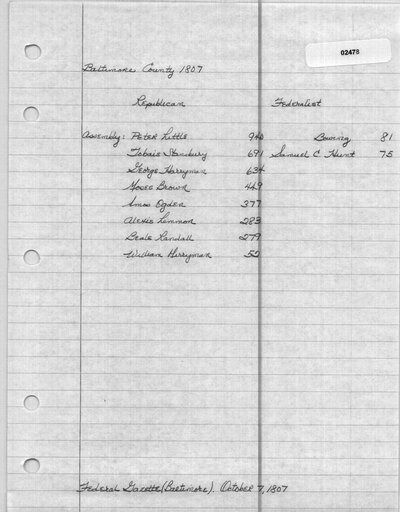 02478
Baltimore County 1807
Republican Federalist
Assembly: Peter Little 940 Downing 81
Tobais Stansbury 691 Samuel C. Hunt 75
George Harryman 634
Moses Brown 449
Amos Ogden 377
Alexis Lemmon 283
Beale Randall 279
William Merryman 52
Federal Gazette (Baltimore). October 7, 1807